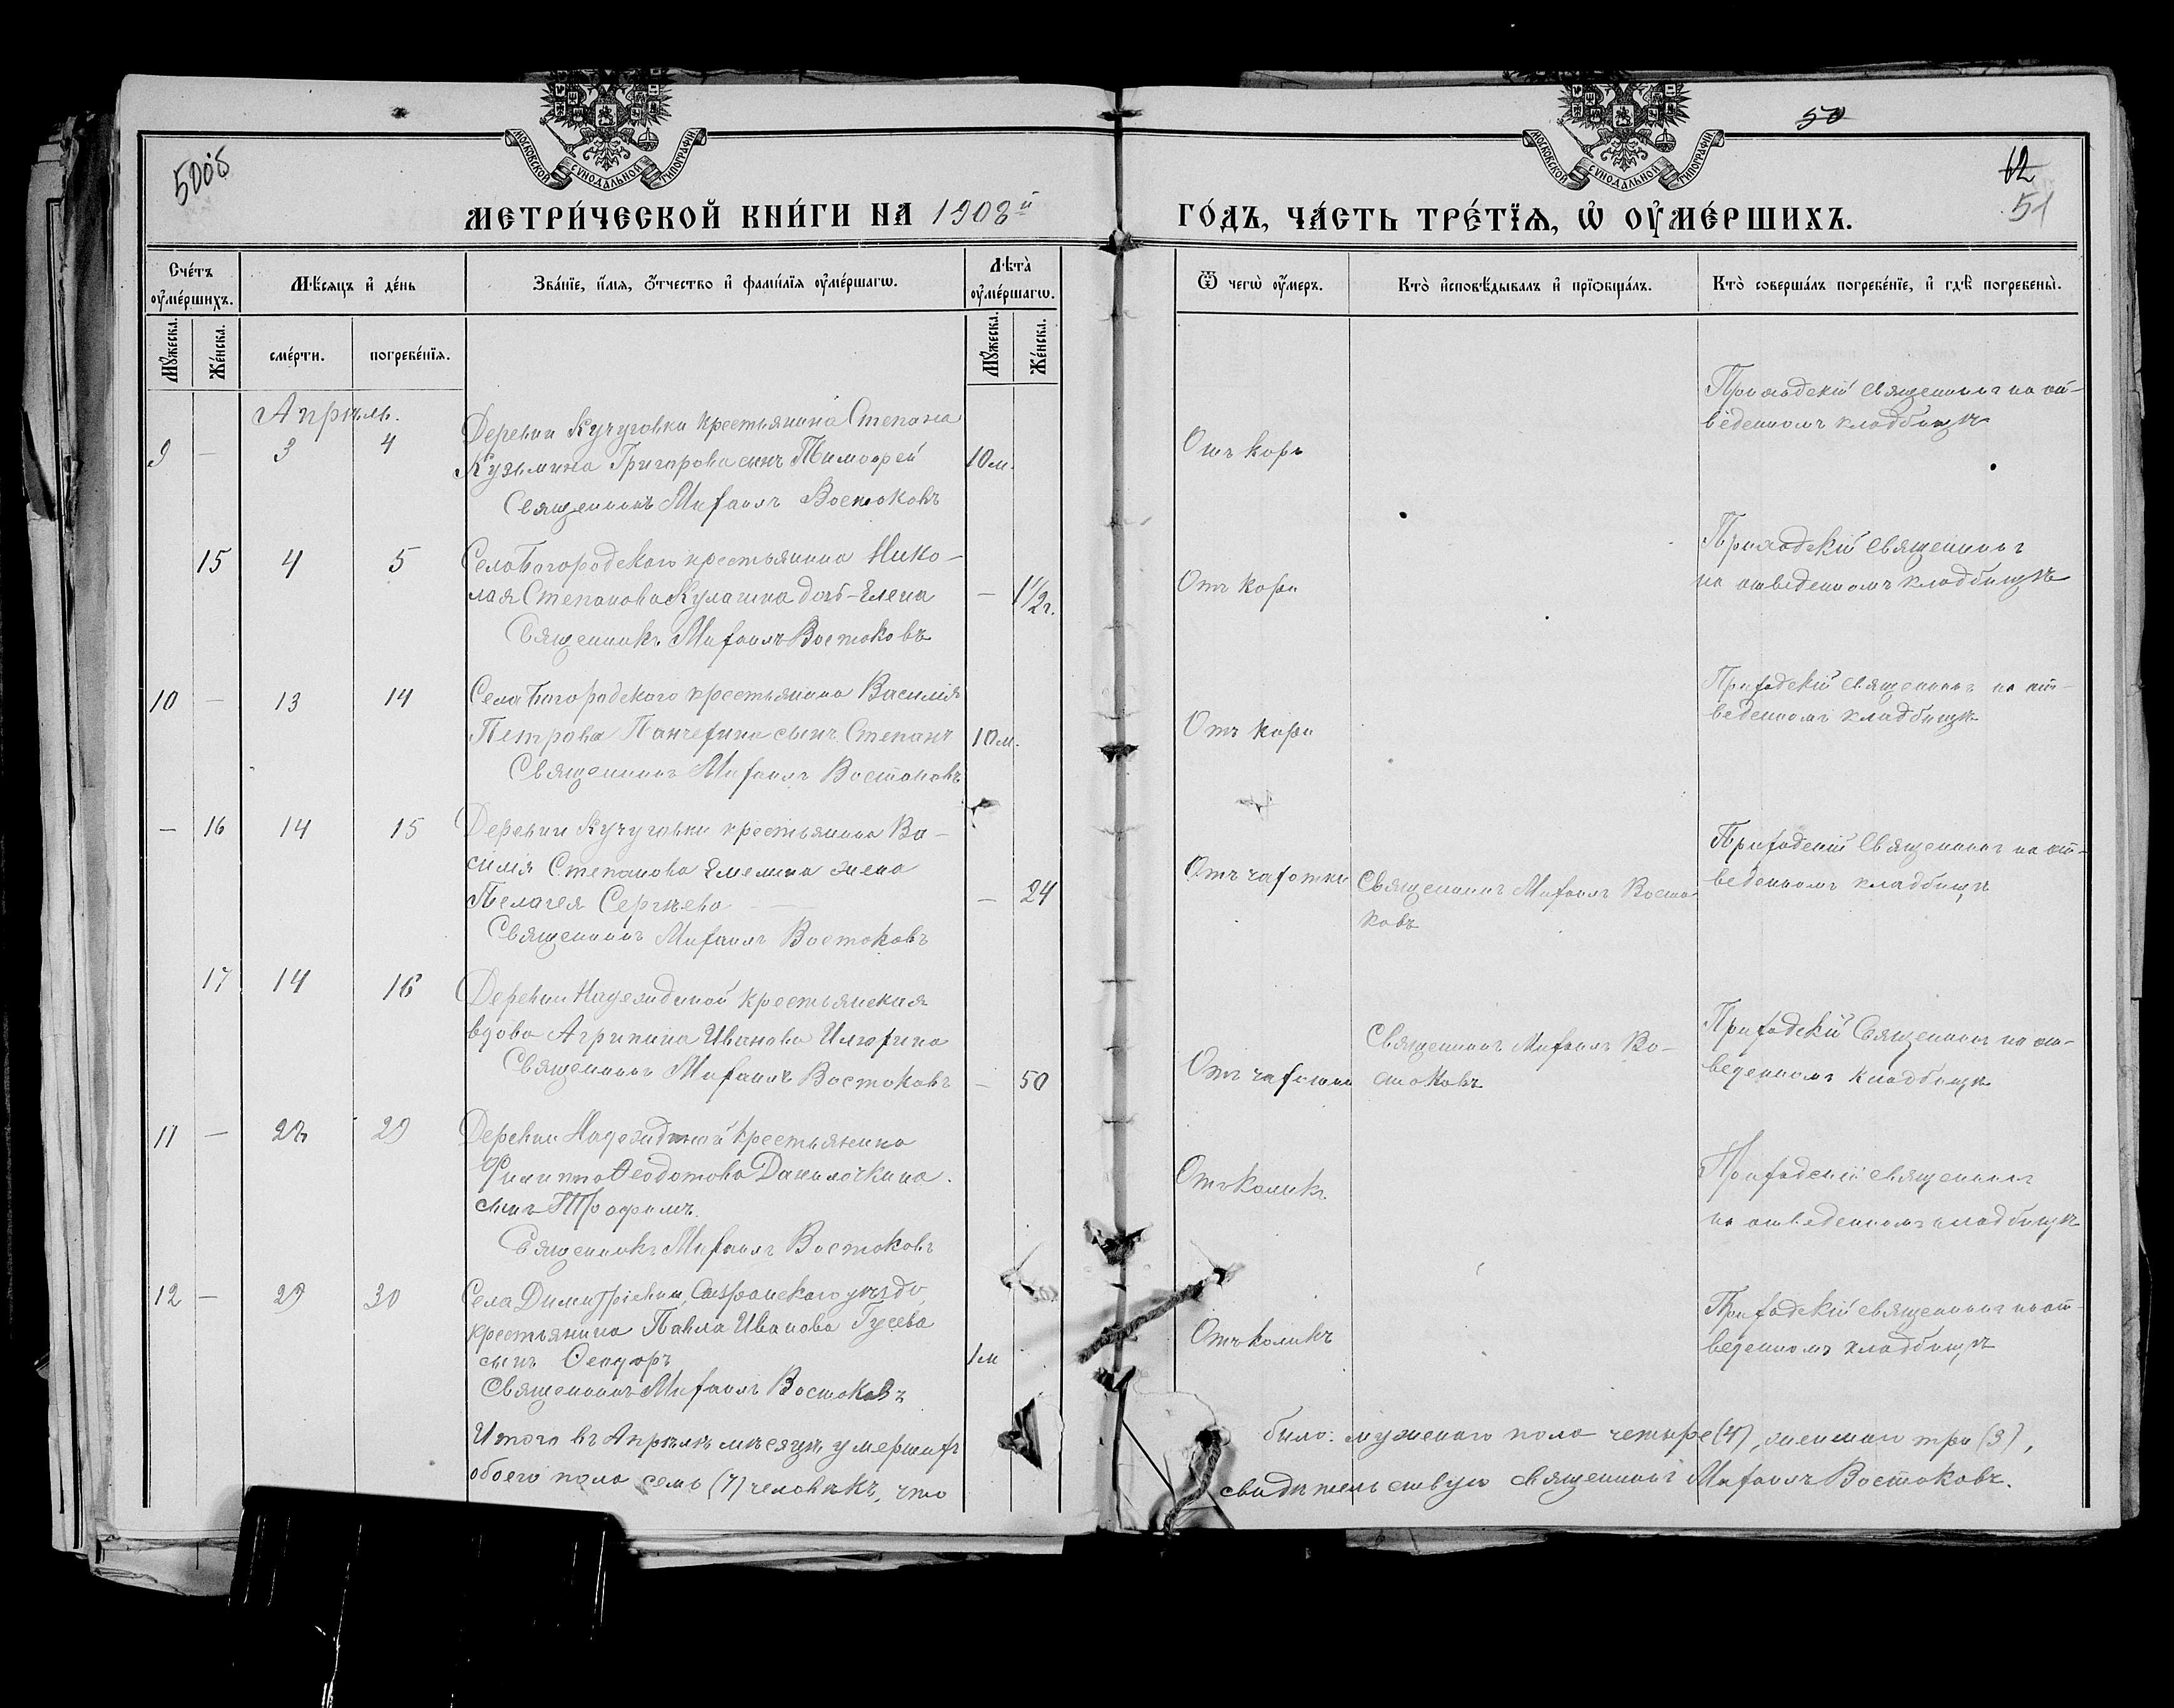 50
5006
62
51
МОСКОВСКОЙ СѴНОДАЛЬНОЙ ТИПОГРАФІИ
МОСКОВСКОЙ СѴНОДАЛЬНОЙ ТИПОГРАФІИ
МЕТРИ́ЧЕСКОЙ КНИ́ГИ НА 1908й ГО́ДЪ, ЧА́СТЬ ТРЕ́ТІѦ, Ѡ ОУ҆МЕ́РШИХЪ.
Сче́тъ оу҆ме́ршихъ.
Мѣ́сяцъ и҆ де́нь
Зва́нїе, и҆́мя, ѻ҆́тчество и҆ фами́лїя оу҆ме́ршагѡ.
Лѣта̀ оу҆ме́ршагѡ.
Ѿ чегѡ̀ оу҆́меръ.
Кто̀ и҆сповѣ́дывалъ и҆ прїѡбща́лъ.
Кто̀ соверша́лъ погребе́нїе, и҆ гдѣ̀ погребены̀.
Мꙋ́жеска.
Же́нска.
сме́рти.
погребе́нїя.
Мꙋ́жеска.
Же́нска.
Апрѣль.
9 — 3 4
Деревни Кучуговки крестьянина Степана
Кузьмина Григорова сынъ Тимоѳей
10м.
Священникъ Михаилъ Востоковъ
Отъ кори
Приходскій священникъ на от-
веденномъ кладбищѣ
15 4 5
Села Богородского крестьянина Нико-
лая Степанова Кулагина дочь Елена
— 1 1/2 г.
Священникъ Михаилъ Востоковъ
Отъ кори
Приходскій священникъ
на отведенномъ кладбищѣ
10 — 13 14
Села Богородского крестьянина Василія
Петрова сынъ Степанъ
10м.
Священникъ Михаилъ Востоковъ
Отъ кори
Приходскій священникъ на от-
веденномъ кладбищѣ
— 16 14 15
Деревни Кучуговки крестьянина Ва-
силія Степанова Емелина жена
Пелагея Сергѣева
— 24
Священникъ Михаилъ Востоковъ
Отъ чахотки
Священникъ Михаилъ Восто
ковъ
Приходскій Священникъ на от-
веденномъ кладбищѣ
17 14 16
Деревни Надеждиной крестьянская
вдова Агрипина Иванова Илюхина
Священникъ Михаилъ Востоковъ
— 50
Отъ чахотки
Священникъ Михаилъ Во-
стоковъ
Приходскій Священникъ на от-
веденномъ кладбищѣ
11 — 29
Деревни Надеждиной крестьянина
Филиппа Ѳеодотова Данилочкина
сынъ Трофимъ.
Священникъ Михаилъ Востоковъ
Отъ коликъ
Приходскій священникъ
на отведенномъ кладбищѣ
12 — 29 30
Села Димитріевки, уѣзда,
крестьянина Павла Иванова Гусева
сынъ Ѳеодоръ
1м
Священникъ Михаилъ Востоковъ
Отъ коликъ
Приходскій священникъ на от-
веденномъ кладбищѣ
Итого въ Апрѣлѣ мѣсяцѣ умершихъ было: мужеского пола четыре (4), женского три (3),
обоего пола семь (7) человѣкъ, что свидѣтельствую священникъ Михаилъ Востоковъ.